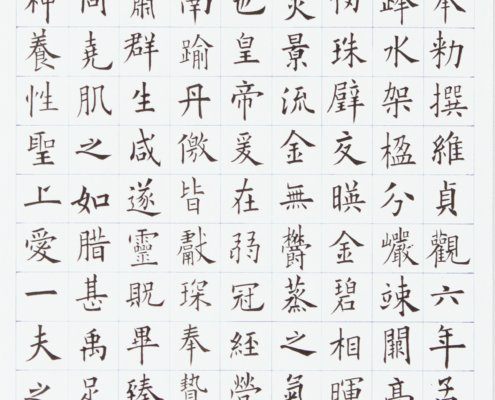 奉勅撰維貞觀六年孟
跨水架楹分巖竦闕高
仞珠壁交暎金碧相暉
炎景流金無鬱蒸之氣
也皇帝爰在弱冠經營
南踰丹儌皆獻琛奉贄
肅群生咸遂靈貺畢臻
同堯肌之如腊甚禹足
神養性聖上愛一夫之